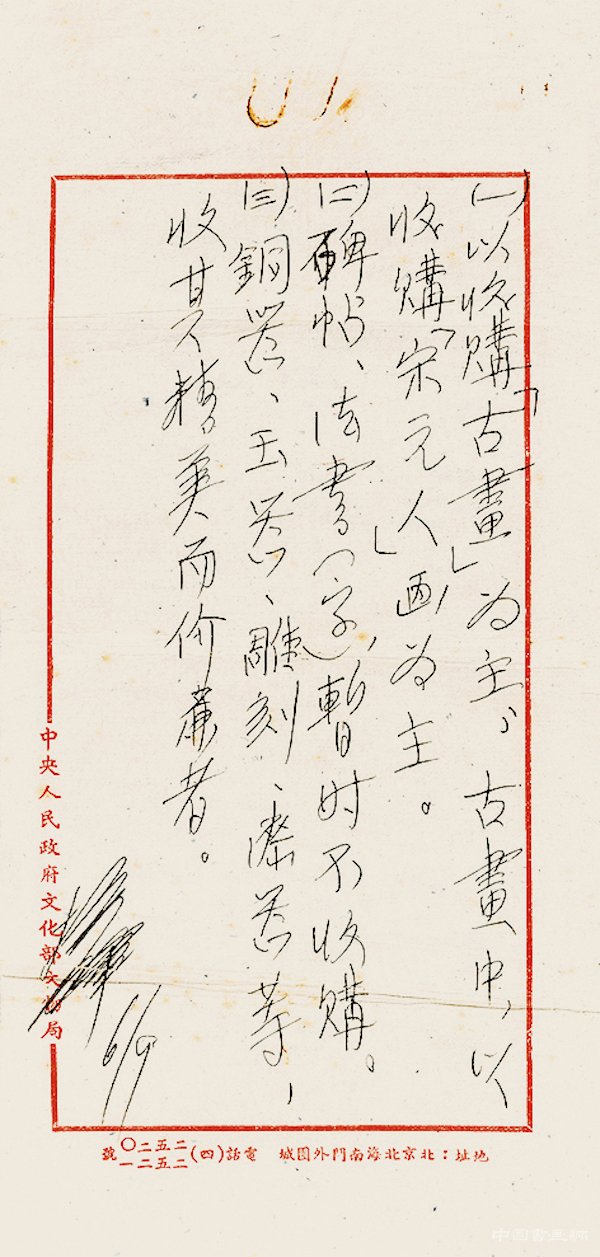 (一)以收購「古畫」为主,古畫中,以
收購「宋元人」画为主。
(二)碑帖、法書(字),暫时不收購。
(三)銅器、玉器、雕刻、漆器等,
收其精美而价廉者。
6/9
中央人民政府文化部文物局
地址:北京北海南門外團城 電話(四)二五二〇 二五二一 號
中国书画网